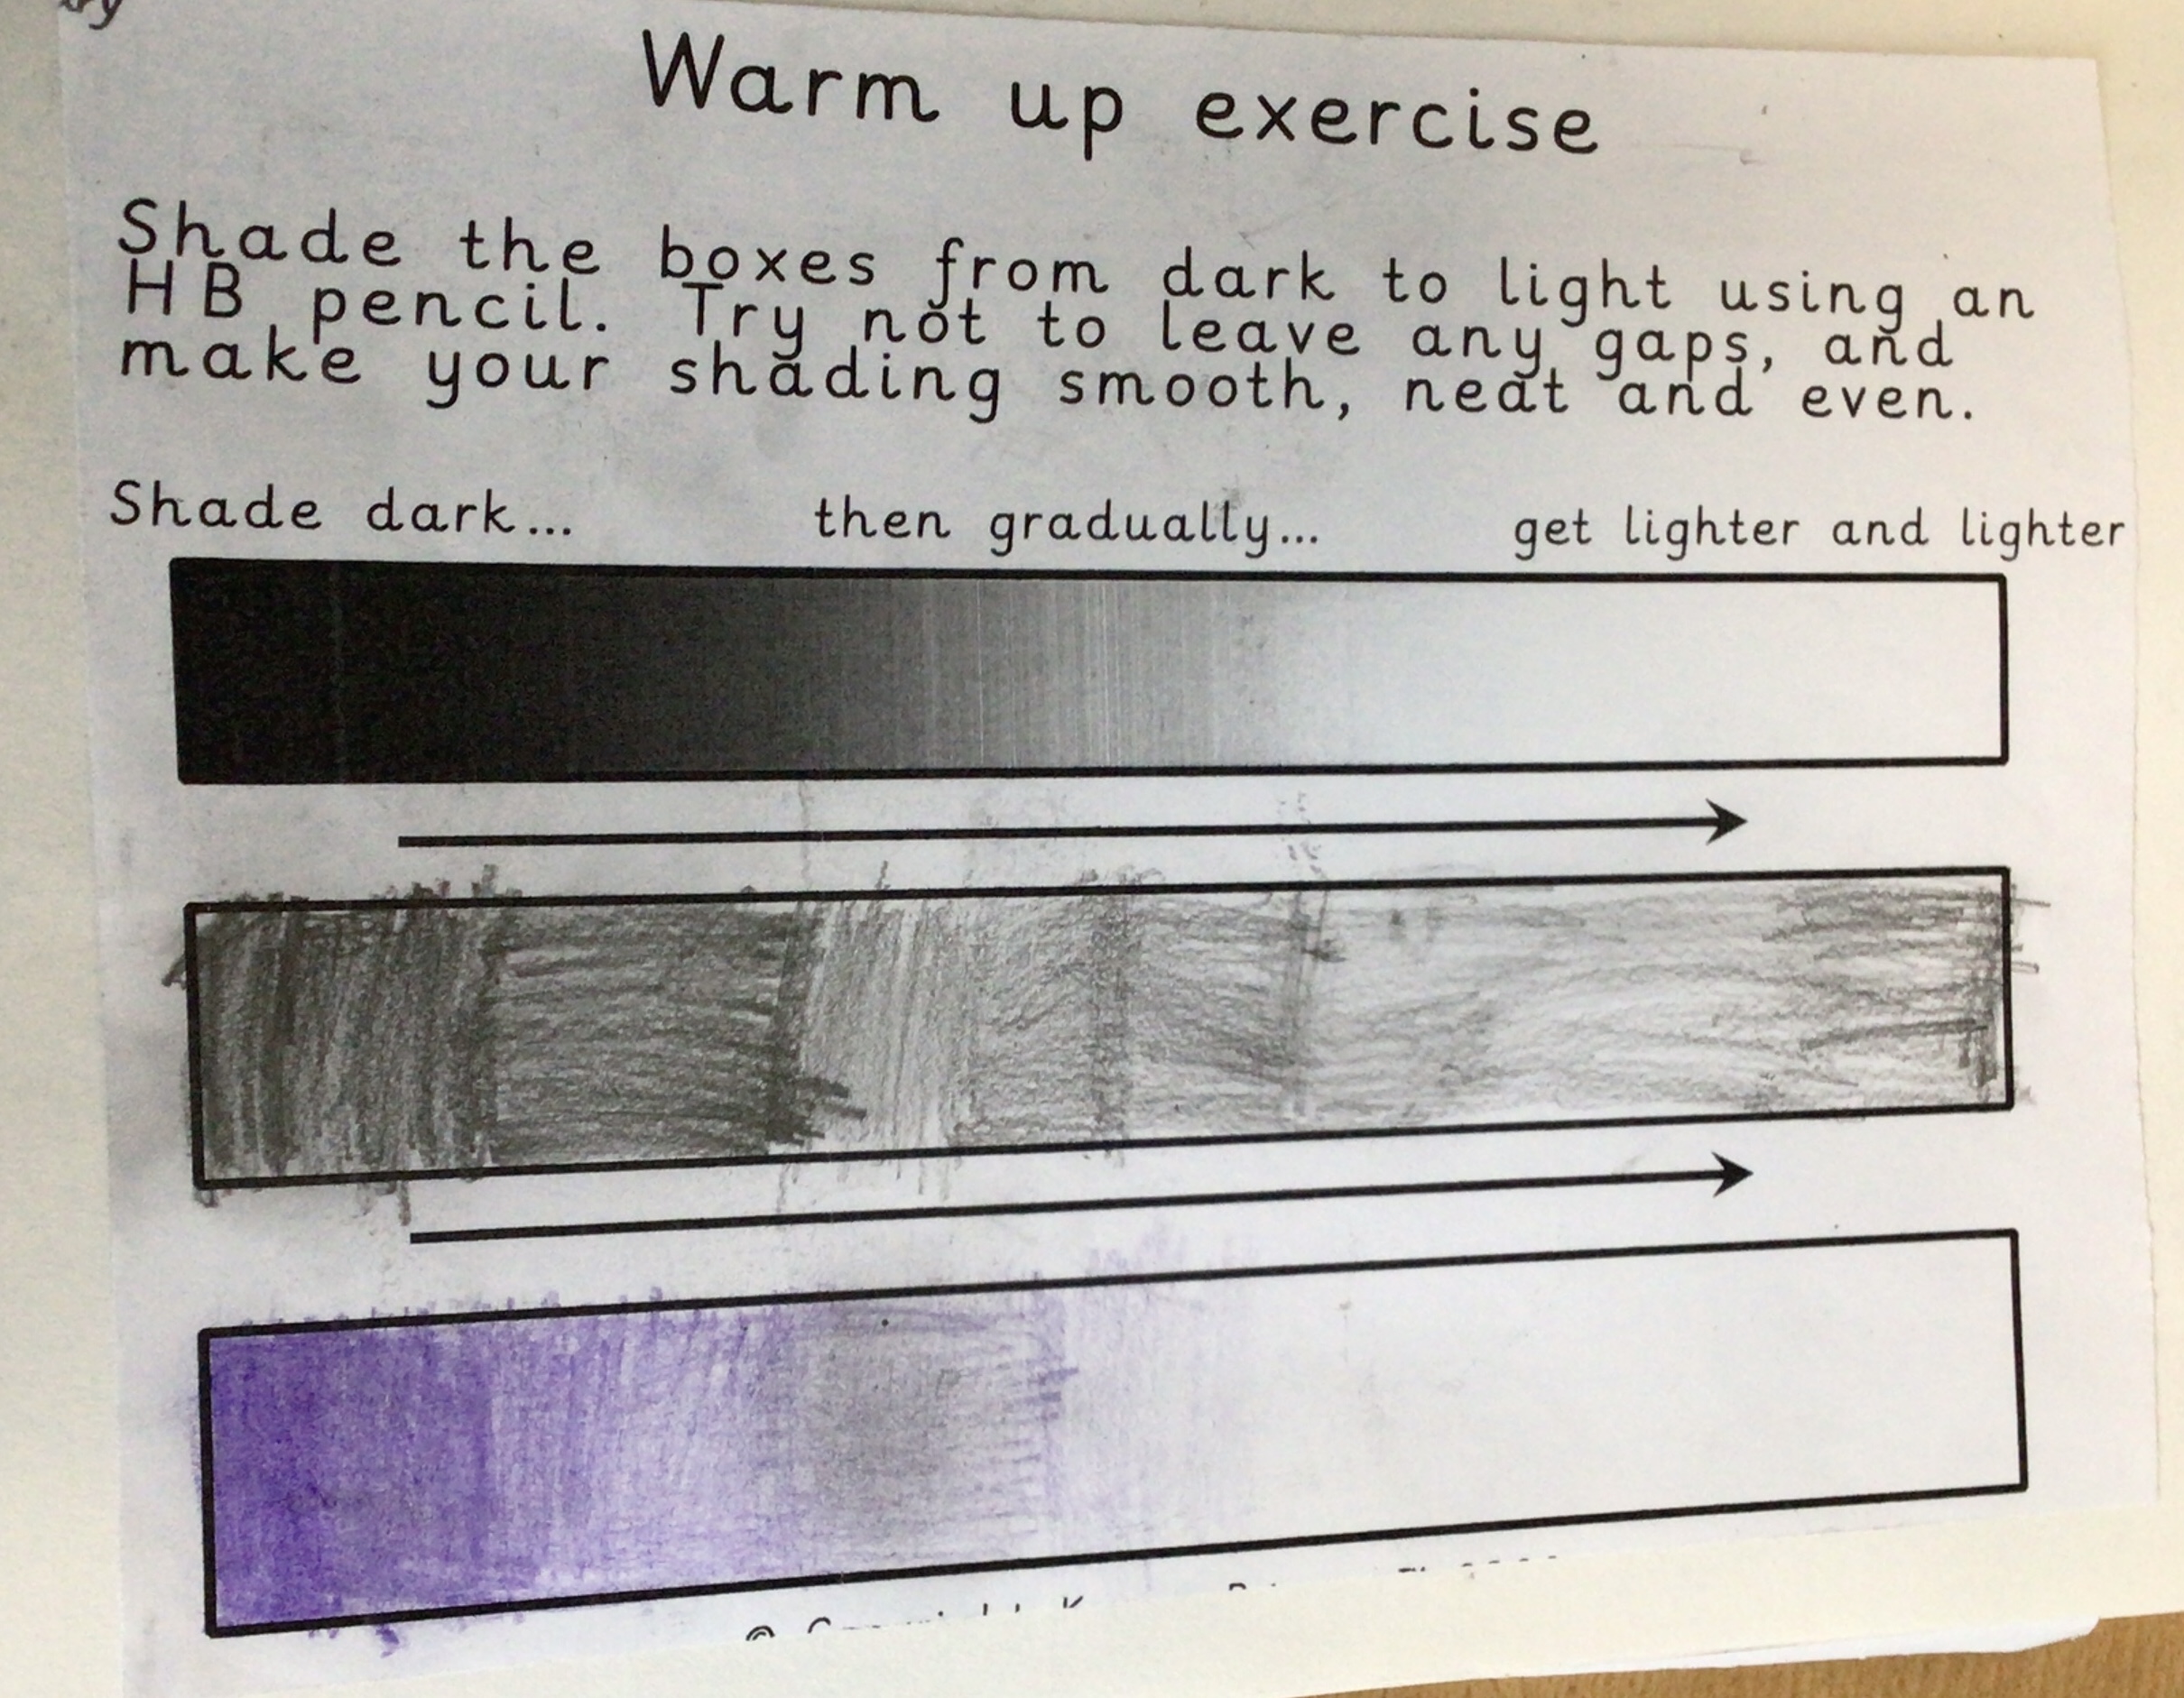 Warm up exercise
Shade the boxes from dark to light using an
HB pencil. Try not to leave any gaps, and
make your shading smooth, neat and even.
Shade dark... then gradually... get lighter and lighter